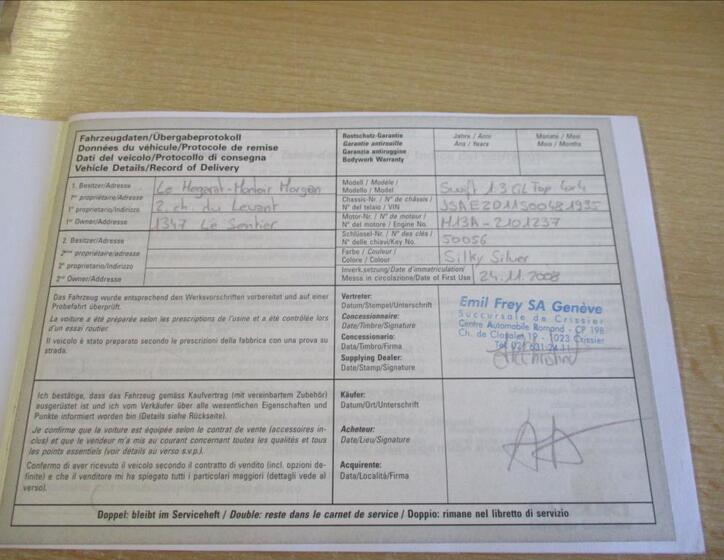 Fahrzeugdaten/Übergabeprotokoll
Données du véhicule/Protocole de remise
Dati del veicolo/Protocollo di consegna
Vehicle Details/Record of Delivery
Rostschutz-Garantie
Garantie antirouille
Garanzia antiruggine
Bodywork Warranty
Jahre / Anni
Ans / Years
Monate / Mesi
Mois / Months
1. Besitzer/Adresse
1er propriétaire/Adresse
1o proprietario/Indirizzo
1st Owner/Address
Le Hegarat-Monloir Morgan
2. ch. du Levant
1347 Le Sentier
Modell / Modèle /
Modello / Model
Swift 1.3 GL Top 4x4
Chassis-Nr. / N° de châssis /
N° del telaio / VIN
JSAEZD11S00481935
Motor-Nr. / N° de moteur /
N° del motore / Engine No.
M13A-2101237
2. Besitzer/Adresse
2ème propriétaire/Adresse
2o proprietario/Indirizzo
2nd Owner/Address
Schlüssel-Nr. / N° des clés /
N° delle chiavi/Key No.
50056
Farbe / Couleur /
Colore / Colour
Silky Silver
Inverk.setzung/Date d'immatriculation/
Messa in circolazione/Date of First Use
24.11.2008
Das Fahrzeug wurde entsprechend den Werksvorschriften vorbereitet und auf einer
Probefahrt überprüft.
La voiture a été préparée selon les prescriptions de l'usine et a été contrôlée lors
d'un essai routier.
Il veicolo è stato preparato secondo le prescrizioni della fabbrica con una prova su
strada.
Vertreter:
Datum/Stempel/Unterschrift
Concessionnaire:
Date/Timbre/Signature
Concessionario:
Data/Timbro/Firma
Supplying Dealer:
Date/Stamp/Signature
Emil Frey SA Genève
Succursale de Crissier
Centre Automobile Romand - CP 198
Ch. de Closalet 19 - 1023 Crissier
Tél. 021 631 24 11
Ich bestätige, dass das Fahrzeug gemäss Kaufvertrag (mit vereinbartem Zubehör)
ausgerüstet ist und ich vom Verkäufer über alle wesentlichen Eigenschaften und
Punkte informiert worden bin (Details siehe Rückseite).
Je confirme que la voiture est équipée selon le contrat de vente (accessoires in-
clus) et que le vendeur m'a mis au courant concernant toutes les qualités et tous
les points essentiels (voir détails au verso s.v.p.).
Confermo di aver ricevuto il veicolo secondo il contratto di vendita (incl. opzioni de-
finite) e che il venditore mi ha spiegato tutti i particolari maggiori (dettagli vede al
verso).
Käufer:
Datum/Ort/Unterschrift
Acheteur:
Date/Lieu/Signature
Acquirente:
Data/Località/Firma
Doppel: bleibt im Serviceheft / Double: reste dans le carnet de service / Doppio: rimane nel libretto di servizio